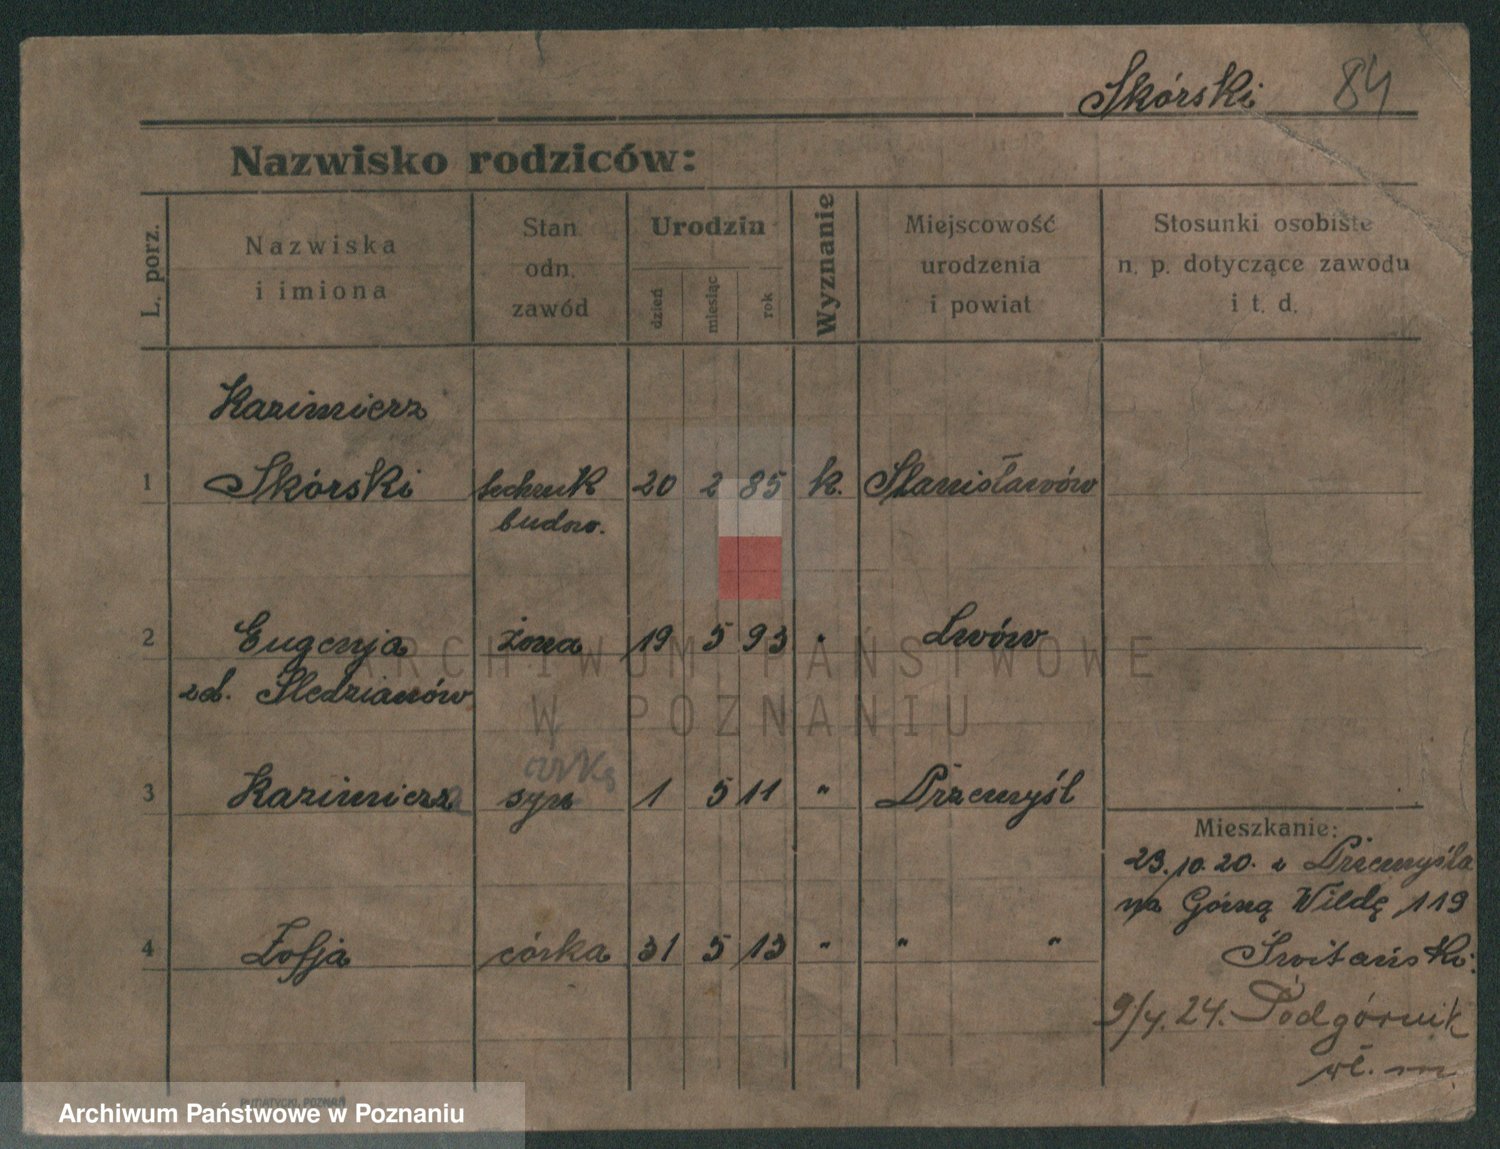 Skórski 84
Nazwisko rodziców:
L. porz.
Nazwiska
i imiona
Stan
odn.
zawód
Urodzin
dzień
miesiąc
rok
Wyznanie
Miejscowość
urodzenia
i powiat
Stosunki osobiste
n. p. dotyczące zawodu
i t. d.
Kazimierz
1 Skórski technik 20 2 85 k. Stanisławów
budow.
2 Eugenja żona 19 5 93 " Lwów
zd. Śledzianów
córka
3 Kazimierza syn 1 5 11 " Przemyśl
4 Zofja córka 31 5 13 " " "
Mieszkanie:
23.10.20. z Przemyśla
na Górną Wildę 119
Świtański.
9/4.24. Podgórnik
wł. m.
ARCHIWUM PAŃSTWOWE
W POZNANIU
PUTIATYCKI, POZNAŃ
Archiwum Państwowe w Poznaniu